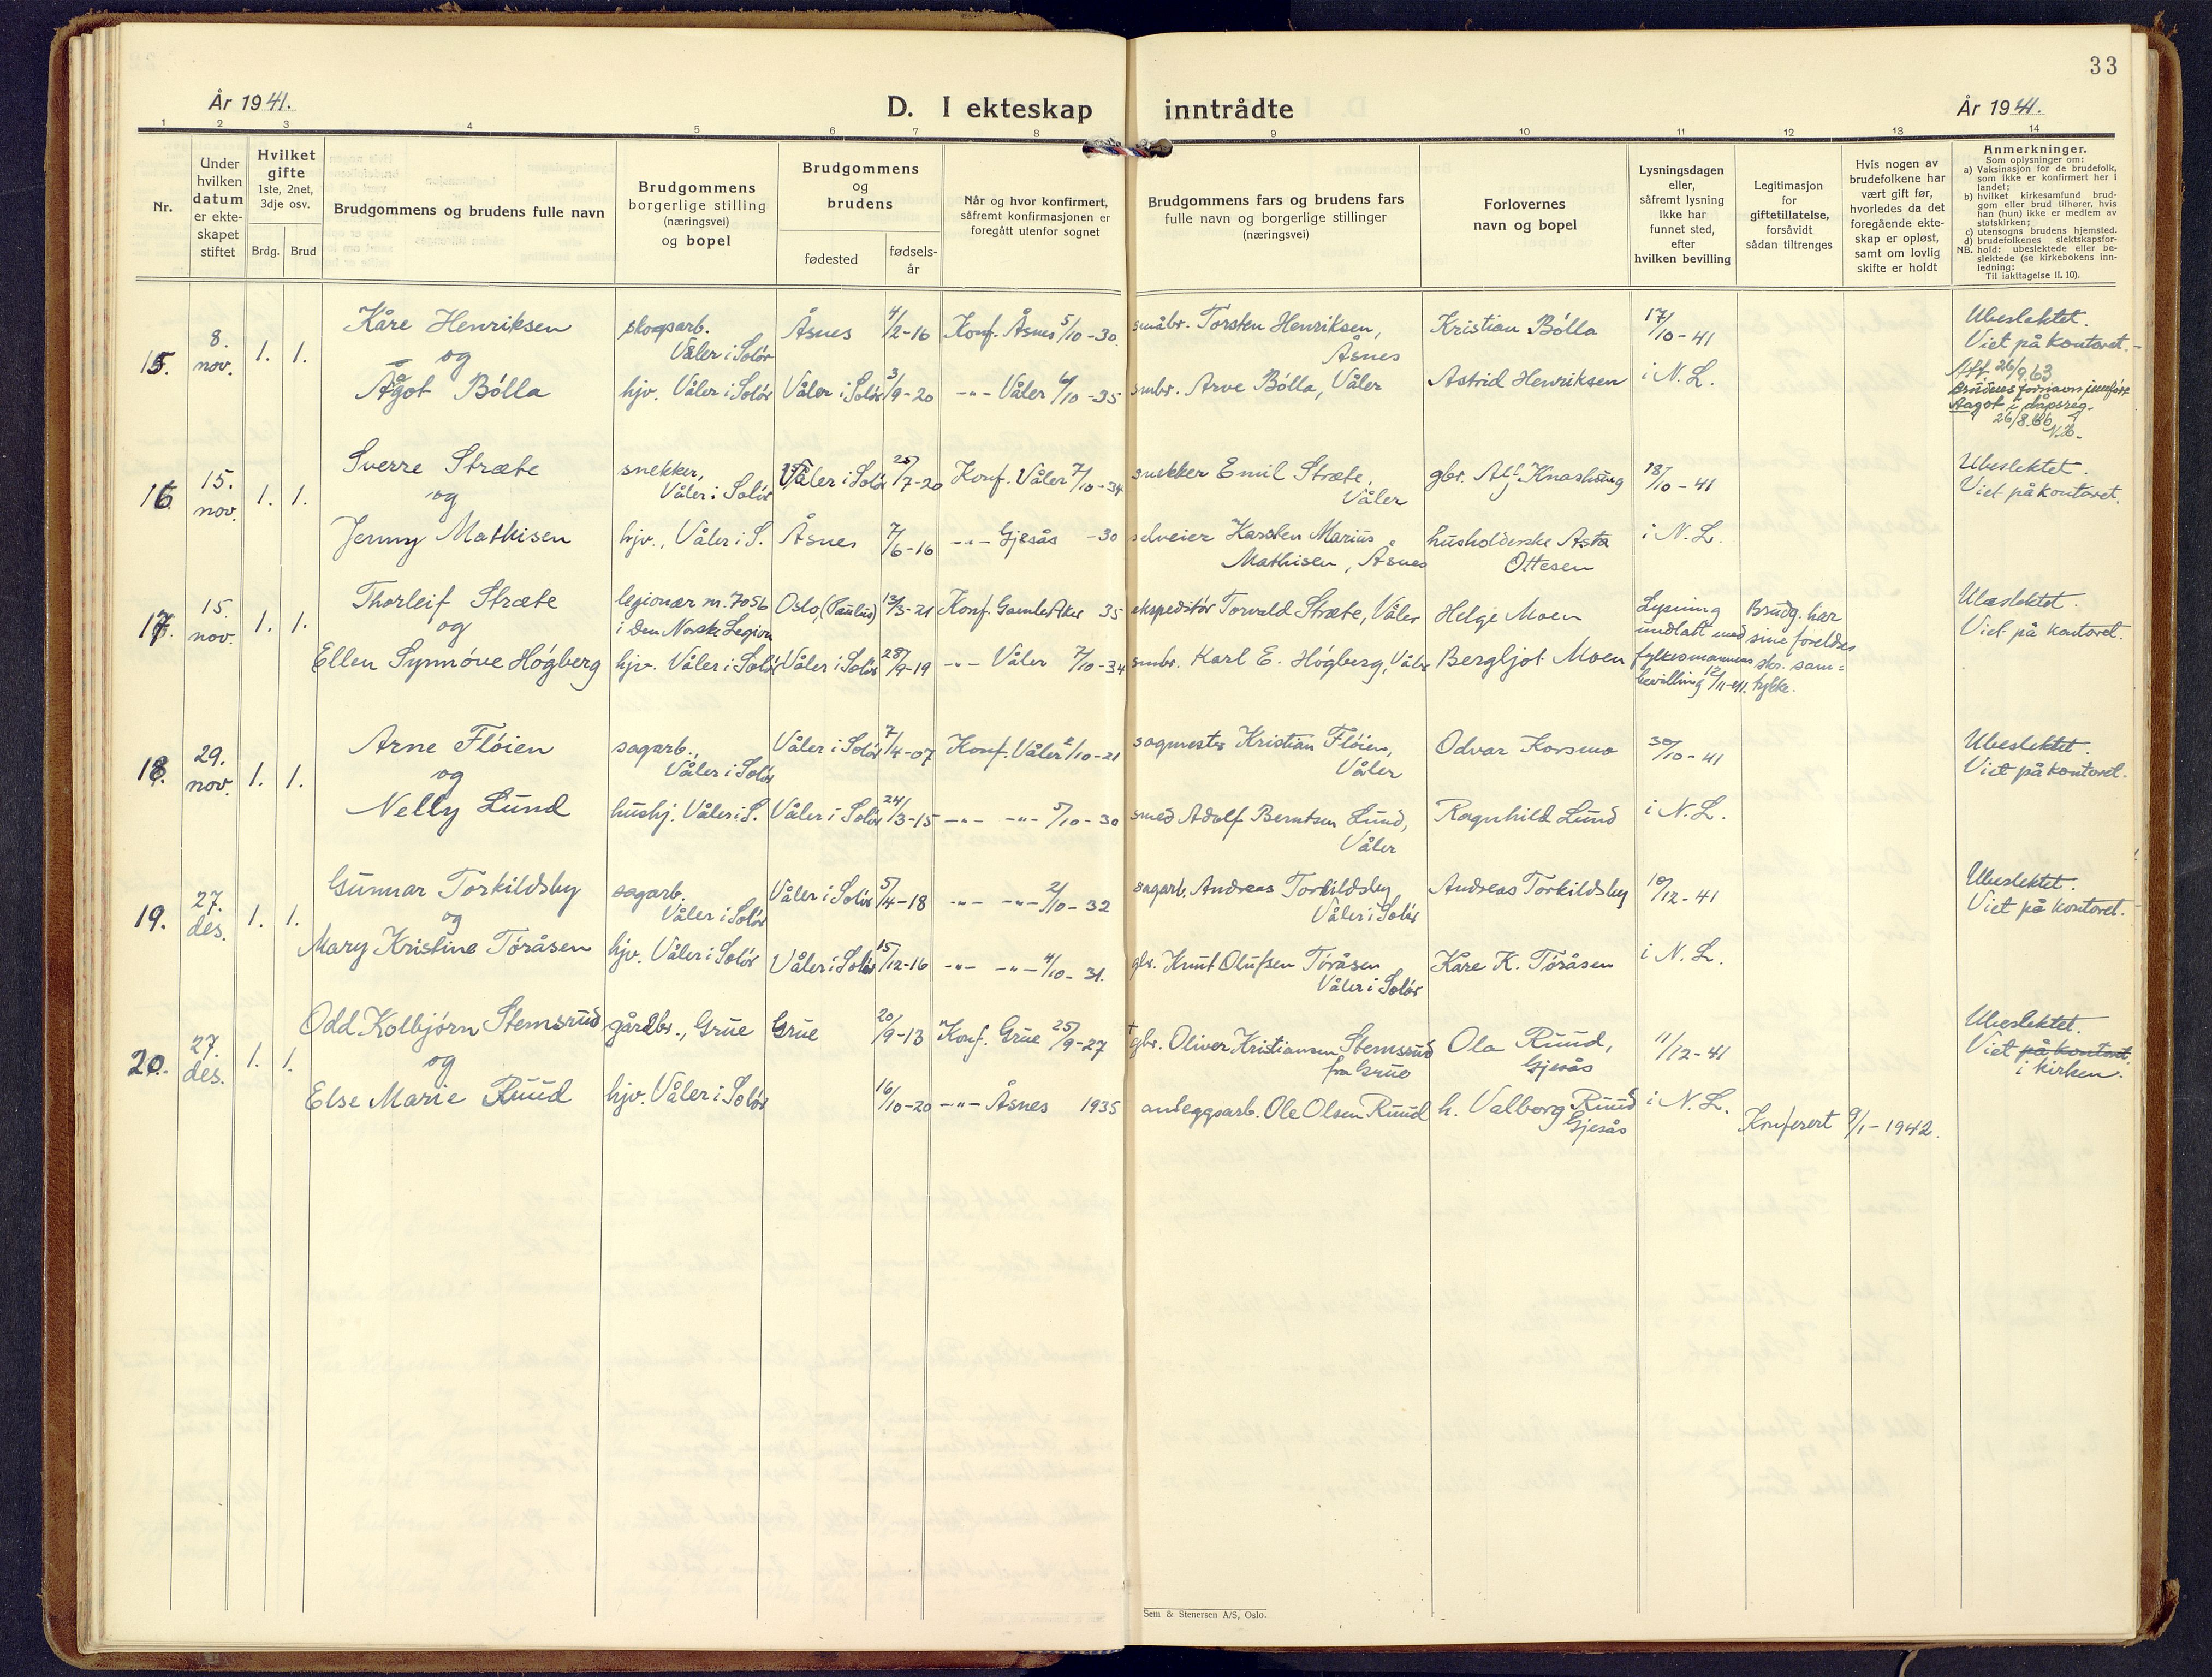 33
År 1941.
D. I ekteskap inntrådte
År 1941.
1 2 3 4 5 6 7 8 9 10 11 12 13 14
Nr.
Under
hvilken
datum
er ekte-
skapet
stiftet
Hvilket
gifte
1ste, 2net,
3dje osv.
Brdg. Brud
Brudgommens og brudens fulle navn
Brudgommens
borgerlige stilling
(næringsvei)
og bopel
Brudgommens
og
brudens
fødested
fødsels-
år
Når og hvor konfirmert,
såfremt konfirmasjonen er
foregått utenfor sognet
Brudgommens fars og brudens fars
fulle navn og borgerlige stillinger
(næringsvei)
Forlovernes
navn og bopel
Lysningsdagen
eller,
såfremt lysning
ikke har
funnet sted,
efter
hvilken bevilling
Legitimasjon
for
giftetillatelse,
forsåvidt
sådan tiltrenges
Hvis nogen av
brudefolkene har
vært gift før,
hvorledes da det
foregående ekte-
skap er opløst,
samt om lovlig
skifte er holdt
Anmerkninger.
Som oplysninger om:
a) Vaksinasjon for de brudefolk,
som ikke er konfirmert her i
landet;
b) hvilket kirkesamfund brud-
gom eller brud tilhører, hvis
han (hun) ikke er medlem av
statskirken;
c) utensogns brudens hjemsted.
d) brudefolkenes slektskapsfor-
NB. hold: ubeslektede eller be-
slektede (se kirkebokens inn-
ledning:
Til iakttagelse II. 10).
15. 8. nov. 1. 1.
Kåre Henriksen
og
Ågot Bólla
skogsarb.
Våler i Solór
hjv. Våler i Solór
Åsnes 4/2-16 Konf. Åsnes 5/10-30.
Våler i Solór 3/9-20 -"- Våler 6/10-35
småbr. Torsten Henriksen,
Åsnes
smbr. Arve Bólla, Våler
Kristian Bólla
Astrid Henriksen
17/10-41
i N. L.
Ubeslektet.
Viet på kontoret.
26/9.63
Brudens fornavn innført
Aagot i dåpsreg.
26/8.66
16. 15. nov. 1. 1.
Sverre Stræte
og
Jenny Mathisen
snekker,
Våler i Solór
hjv., Våler i S.
Våler i Solór 25/7-20 Konf. Våler 7/10-34
Åsnes 7/6-16 -"- Gjesås -30
snekker Emil Stræte,
Våler
selveier Karsten Marius
Mathisen, Åsnes
gbr. Alf Knashaug
husholderske Asta
Ottesen
18/10-41
i N. L.
Ubeslektet.
Viet på kontoret.
17. 15 nov. 1. 1.
Thorleif Stræte
og
Ellen Synnóve Hógberg
legionær nr. 7056
i Den Norske Legion
hjv. Våler i Solór
Oslo, (Paulus) 13/3-21 Konf. Gamle Aker 35
Våler i Solór 28/9-19 -"- Våler 7/10-34
ekspeditór Torvald Stræte, Våler
smbr. Karl E. Hógberg, Våler
Helge Moen
Bergljot Moen
Lysning
undlatt med
fylkesmannens
bevilling 12/11-41.
Brudg. har
sine foreldres
skr. sam=
tykke.
Ubeslektet.
Viet på kontoret.
18. 29. nov. 1. 1.
Arne Flóien
og
Nelly Lund
sagarb.,
Våler i Solór
hushj. Våler i S.
Våler i Solór 7/4-07 Konf. Våler 2/10-21
Våler i Solór 24/3-15 -"- -"- 5/10-30
sagmester Kristian Flóien,
Våler
smed Adolf Berntsen Lund,
Våler
Odvar Korsmo
Ragnhild Lund
30/10-41
i N. L.
Ubeslektet.
Viet på kontoret.
19. 27. des. 1. 1.
Gunnar Torkildsby
og
Mary Kristine Tóråsen
sagarb.
Våler i Solór
hjv. Våler i Solór
Våler i Solór 5/4-18 -"- -"- 2/10-32
Våler i Solór 15/12-16 -"- -"- 4/10-31.
sagarb. Andreas Torkildsby,
Våler i Solór
gbr. Knut Olufsen Tóråsen
Våler i Solór
Andreas Torkildsby
Kåre K. Tóråsen
10/12-41
i N. L.
Ubeslektet.
Viet på kontoret.
20. 27. des. 1. 1.
Odd Kolbjórn Stemsrud
og
Else Marie Ruud
gårdbr., Grue
hjv. Våler i Solór
Grue 20/9-13 Konf. Grue 25/9-27
16/10-20 -"- Åsnes 1935
gbr. Oliver Kristiansen Stemsrud
fra Grue
anleggsarb. Ole Olsen Ruud
Ola Ruud,
Gjesås
h. Valborg Ruud
Gjesås
11/12-41
i N. L.
Ubeslektet.
Viet på kontoret
i kirken.
Konferert 9/1-1942.
Sem & Stenersen A/S, Oslo.